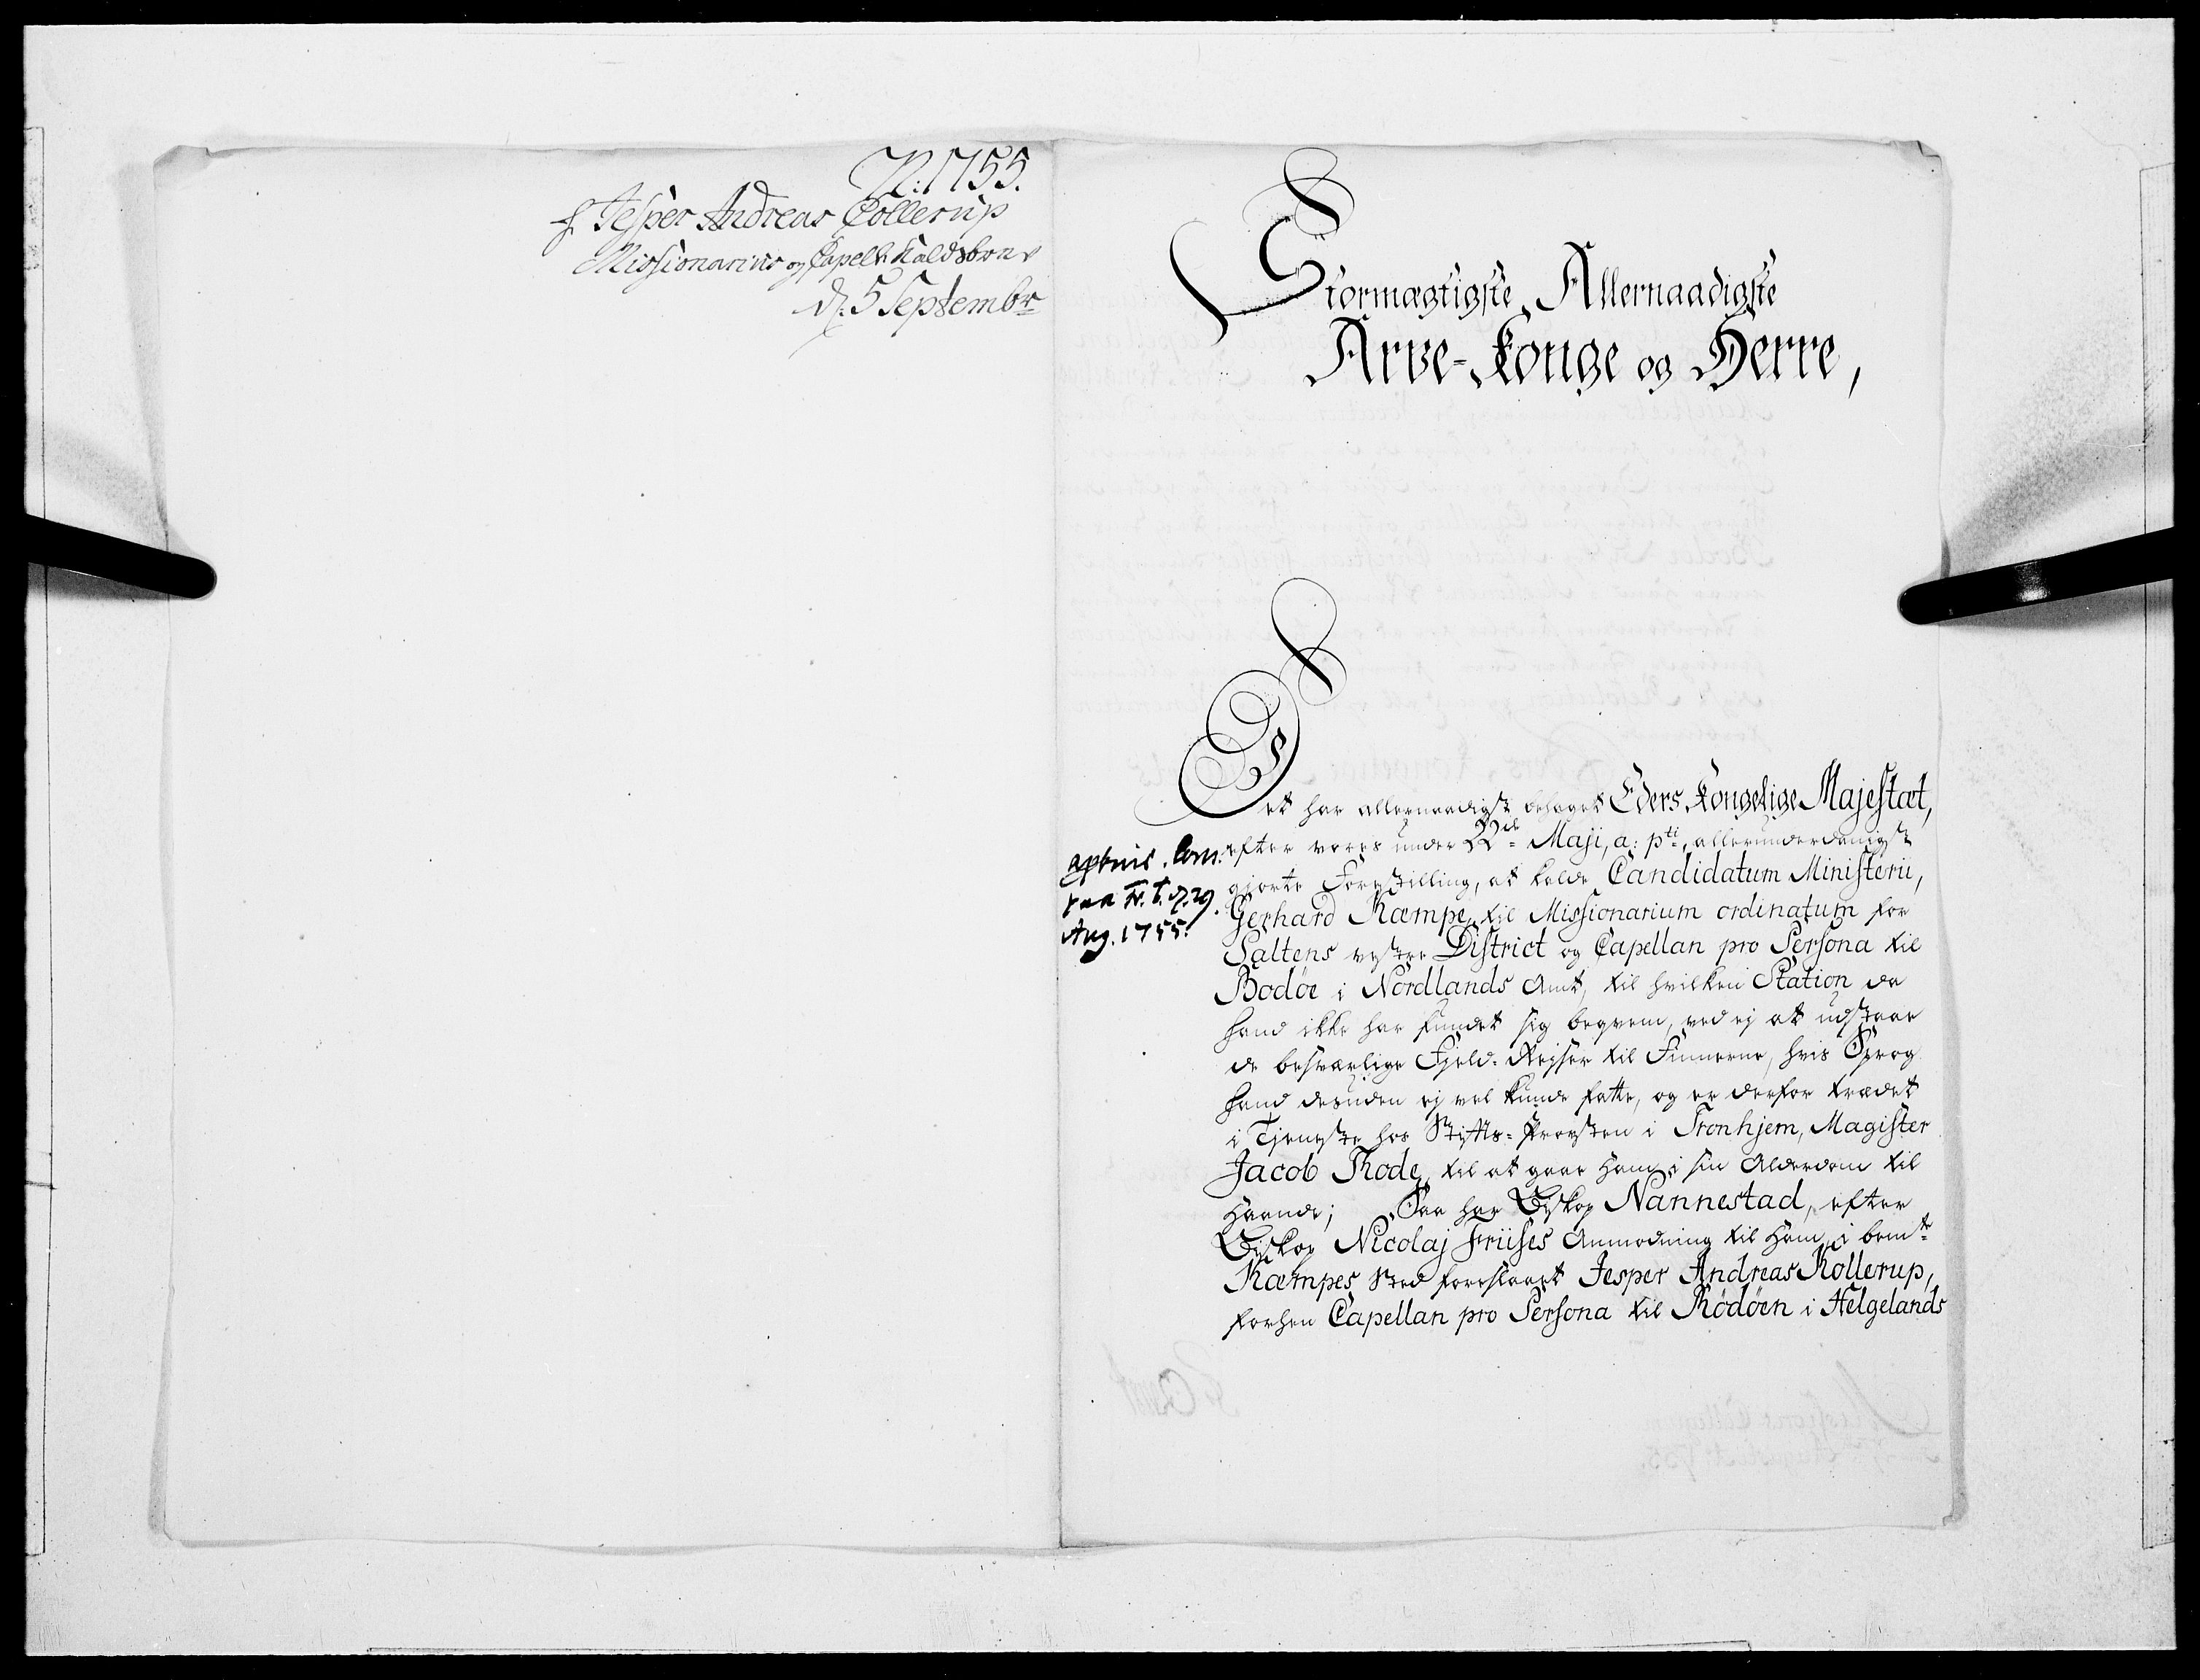 N: 1755.
f Jesper Andreas Collerup
Missionarius og Capell: Kaldsbrev
d: 5 Septembr
Stormægtigste, Allernaadigste
Arve-Konge og Herre,
Det har allernaadigst behaget Eders Kongelige Majestæt,
efter vores under 22de Maji, a: pti: allerunderdanigst
giorte Forestilling, at kalde Candidatum Ministerii,
Gerhard Kæmpe, til Missionarium ordinatum for
Saltens vestre District og Capellan pro Persona til
Bodöe i Nordlands Amt, til hvilken Station da
hand ikke har fundet sig beqvem, ved ej at udstaae
de besværlige Fjeld-Rejser til Finnerne, hvis Sprog
hand desuden ej vel kunde fatte, og er derfor traadt
i Tjeneste hos Stifts-Provsten i Tronhjem, Magister
Jacob Rode, til at gaae Ham i sin Alderdom til
Haande; Saa har Biskop Nannestad, efter
Biskop Nicolaj Friises Anmodning til Ham, i bemte
Kæmpes Sted foreslaaet Jesper Andreas Kollerup,
forhen Capellan pro Persona til Rödöen i Helgelands
paa Fr. b. d. 29.
Aug. 1755.